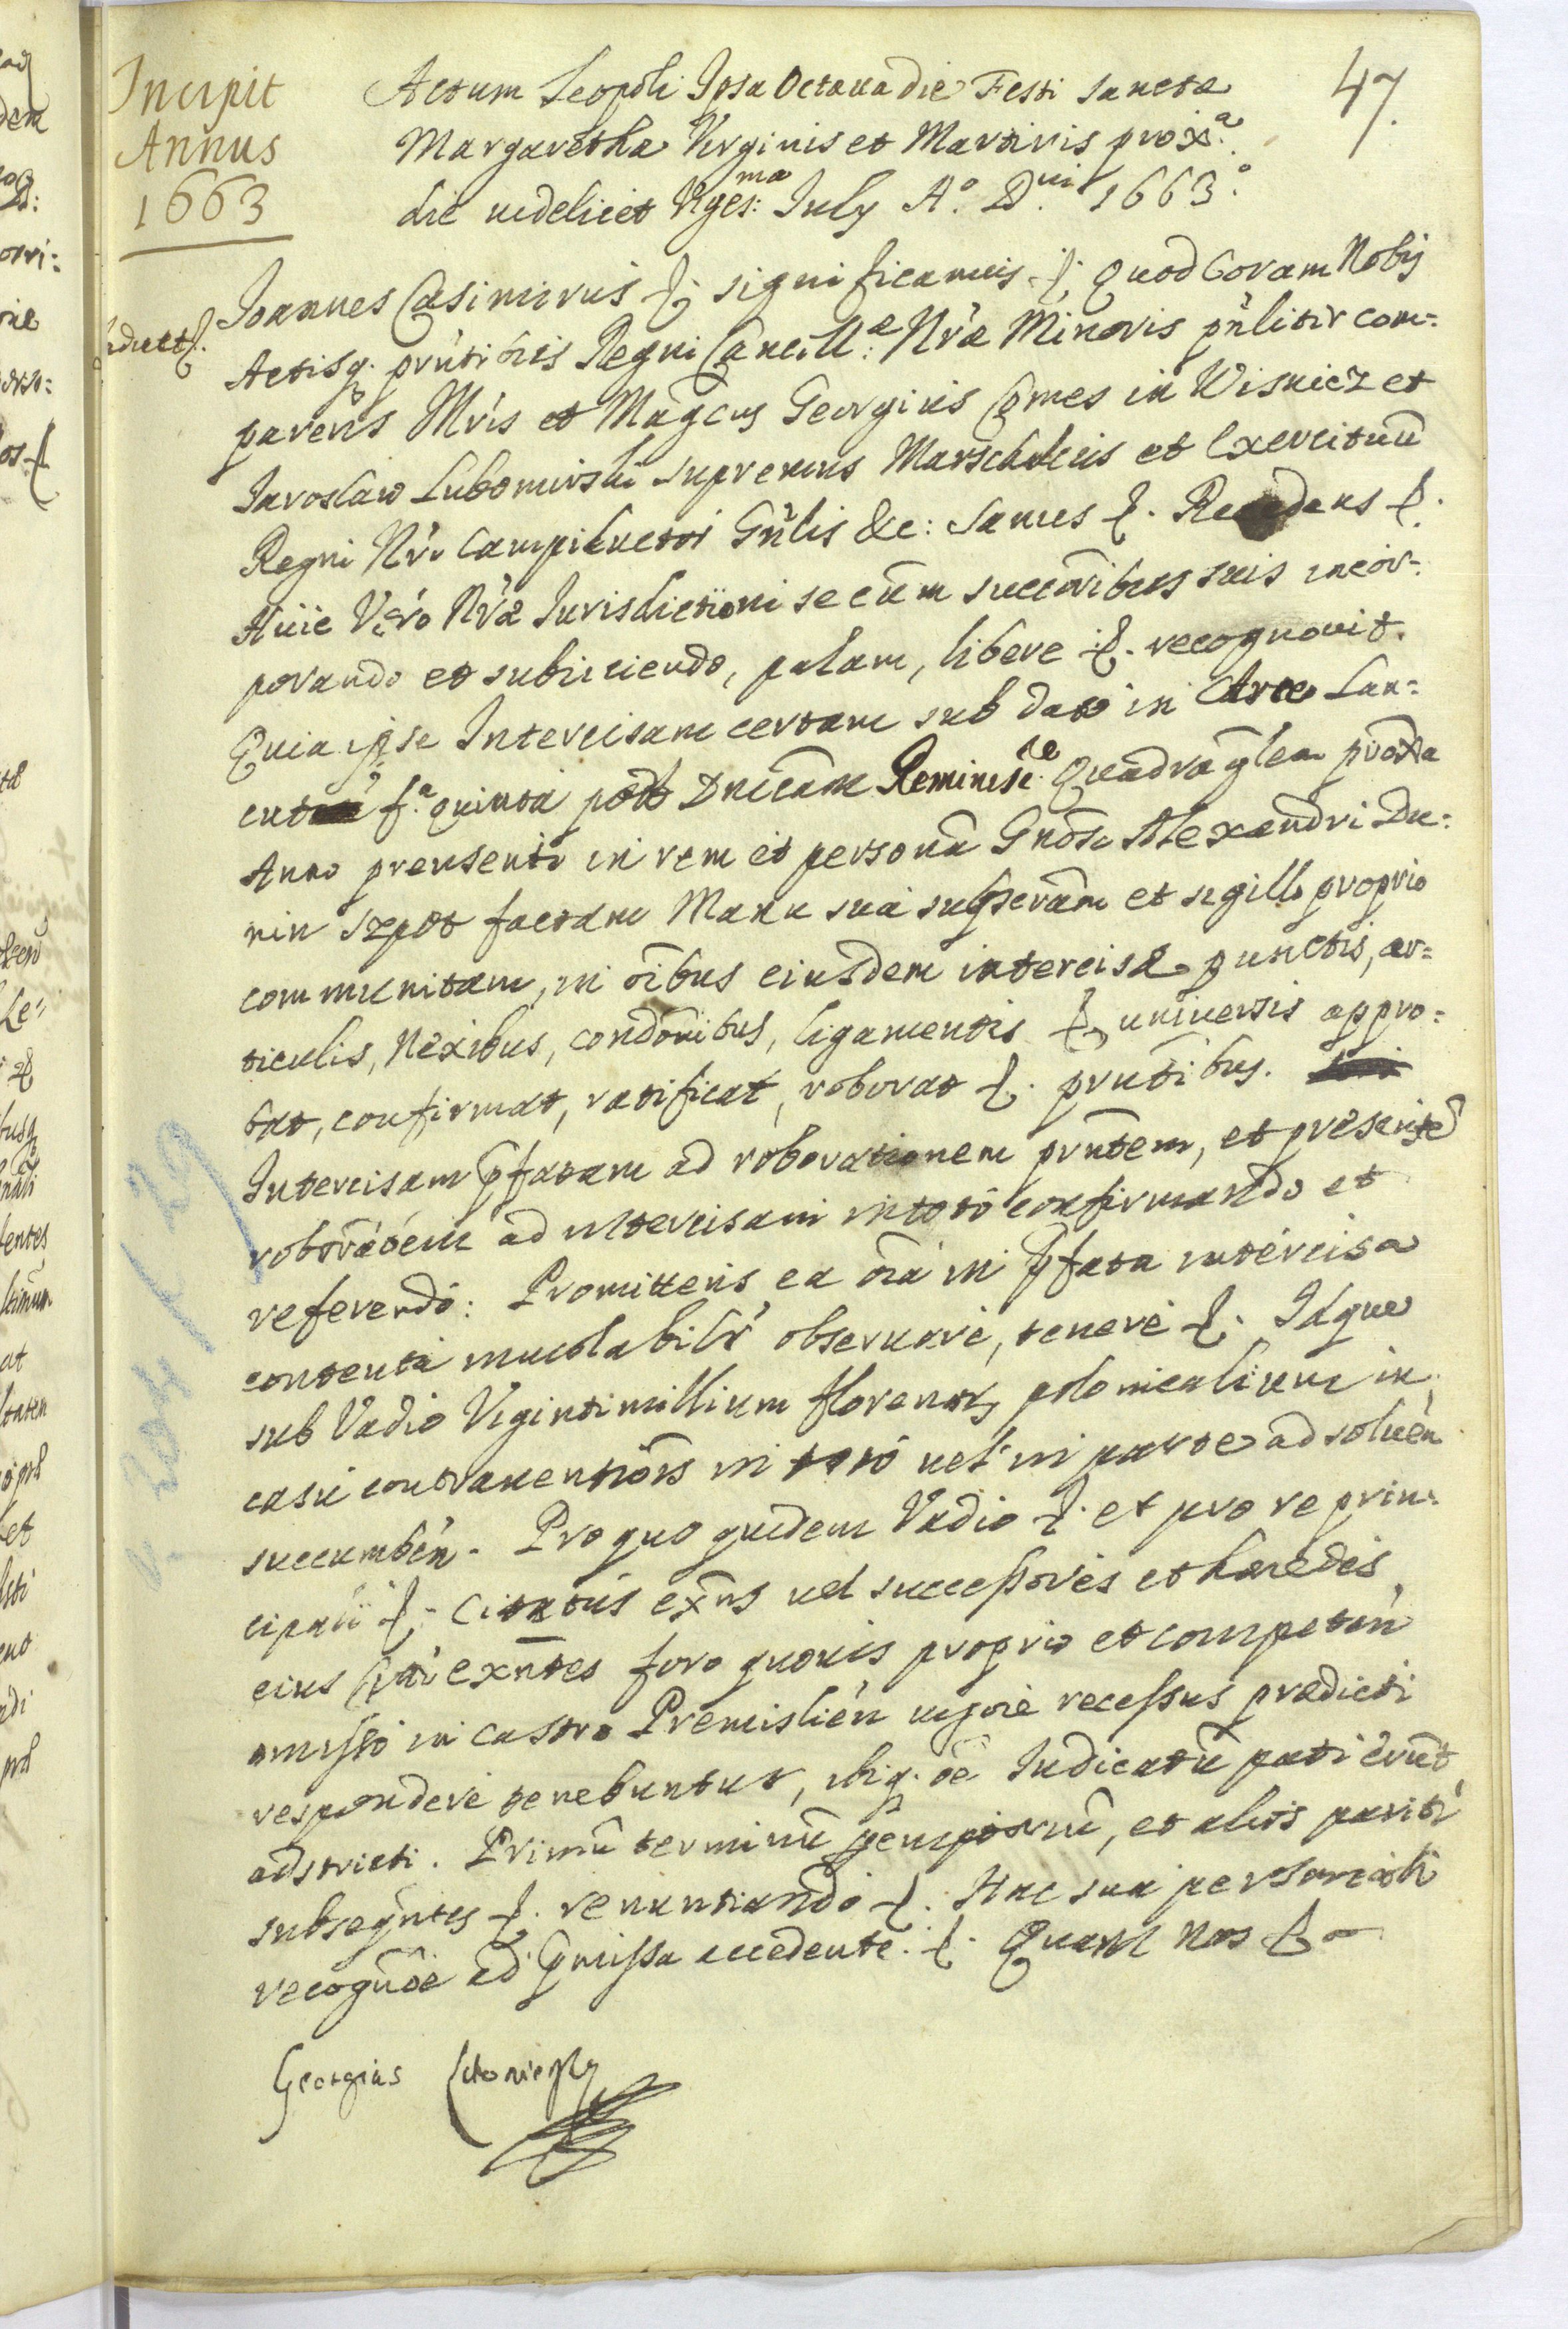 Incipit
Annus
1663
47.
Actum Leopoli Ipsa Octaua die Festi Sanctæ
Margaretha Virginis et Martiris prox:ᵃ
die uidelicet Viges:ᵐᵃ July A.° D.ⁿⁱ 1663.°
Joannes Casimirus &. significamus &. Quod Coram Nobis
Actisq. prntibus Regni Cancill:æ Nræ Minoris pnlitir com=
parens Mris et Magcus Georgius Comes in Wisnicz et
Jaroslaw Lubomirski supremus Marschalcus et Exercituũ
Regni Nri Campiductor Gnlis &c: Sanus &. Recedens &.
Huic Vero Nræ Jurisdictioni se cũm succoribus suis incor=
porando et subiiciendo, palam, libere &. recognouit.
Quia ipse Intercisam certam sub dato in Arce Lan=
cut fᵃ quinta post Dnicam Reminisceˢ: Quadraglem proxa
Anno prensenti in rem et personã Gnosi Alexandri Du=
nin Szpot factam Manu sua subscram et sigillo proprio
communitam, in oibus eiusdem intercisæ punctis, ar=
ticulis, nexibus, condonibus, ligamentis &. uniuersis appro=
bat, confirmat, ratificat, roborat &. prntibus.
Intercisam pfatam ad roborationem prntem, et presente
roboraoem ad intercisam in toto confirmando et
referendo: Promittens ea oia in pfata intercisa
contenta inuiolabilr obseruare, tenere &. Idque
sub Vadio Viginti millium florenor polonicalium in
casu contrauentiois in toto uel in parte ad soluen
succumben. Pro quo quidem Vadio &. et pro re prin=
cipali &. Citatus exns uel successores et hæredes
eius citati exntes foro quouis proprio et competen
omisso in castro Premislien uigore recessus prædicti
respondere tenebuntur, ibiq. oe Iudicatũ pati erunt
adstricti. Primũ terminũ pemptoriũ, et alios pariti
subseqntes &. renuntiando &. Hac sua personali
recognoe ad pmissa accedente. &. Quam nos &
Georgius